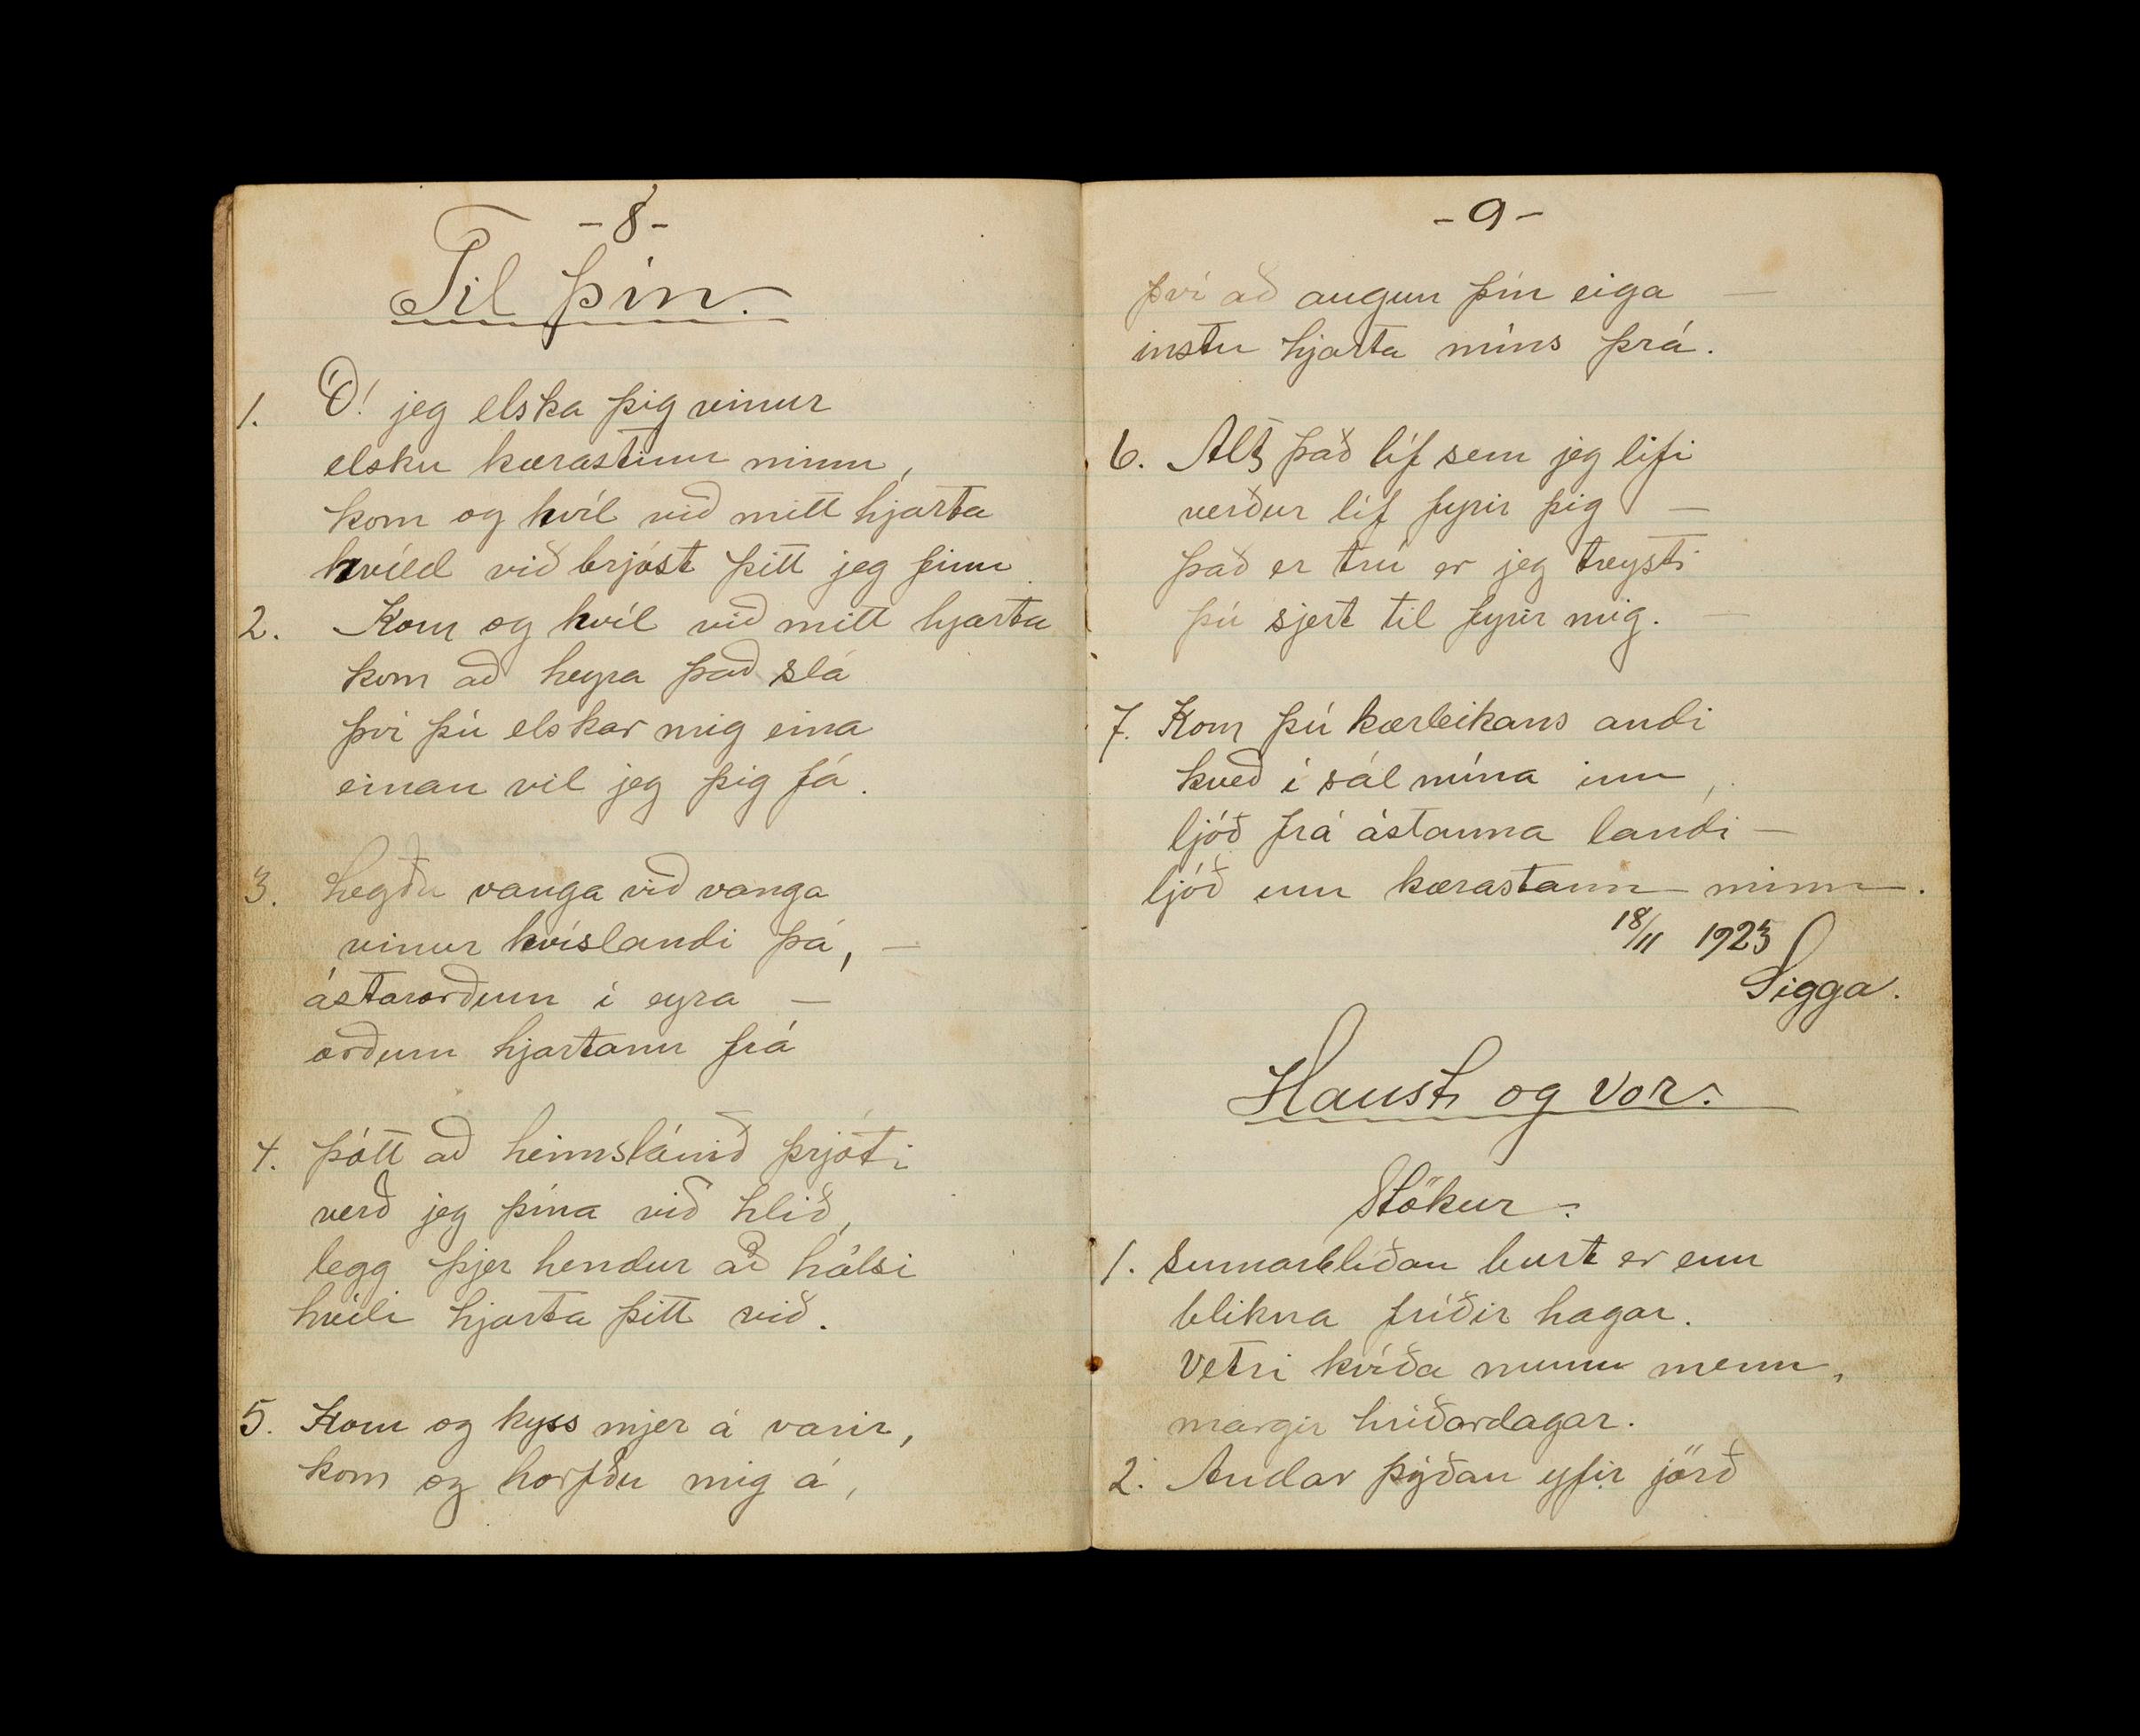 -8-
Til þín.
1. Ó! jeg elska þig vinur
elsku kærastinn minn,
kom og hvíl við mitt hjarta
hvíld við brjóst þitt jeg finn
2. Kom og hvíl við mitt hjarta
kom að heyra það slá
því þú elskar mig eina
einan vil jeg þig fá.
3. Legðu vanga við vanga
vinur hvíslandi þá, –
ástarorðum í eyra –
orðum hjartanu frá
4. Þótt að heimslánið þrjóti
verð jeg þína við hlið,
legg þjer hendur að hálsi
hvíli hjarta þitt við.
5. Kom og kyss mjer á varir,
kom og horfðu mig á,
-9-
því að augun þín eiga –
instu hjarta míns þrá.
6. Alt það líf sem jeg lifi
verður líf fyrir þig –
það er trú er jeg treysti
þú sjert til fyrir mig. –
7. Kom þú kærleikans andi
kveð í sál mína inn,
ljóð frá ástanna landi –
ljóð um kærastann minn.
18/11 1923
Sigga.
Haust og vor.
Stökur.
1. Sumarblíðan burt er enn
blikna fríðir hagar.
Vetri kvíða munu menn,
margir hríðardagar.
2. Andar þýðan yfir jörð